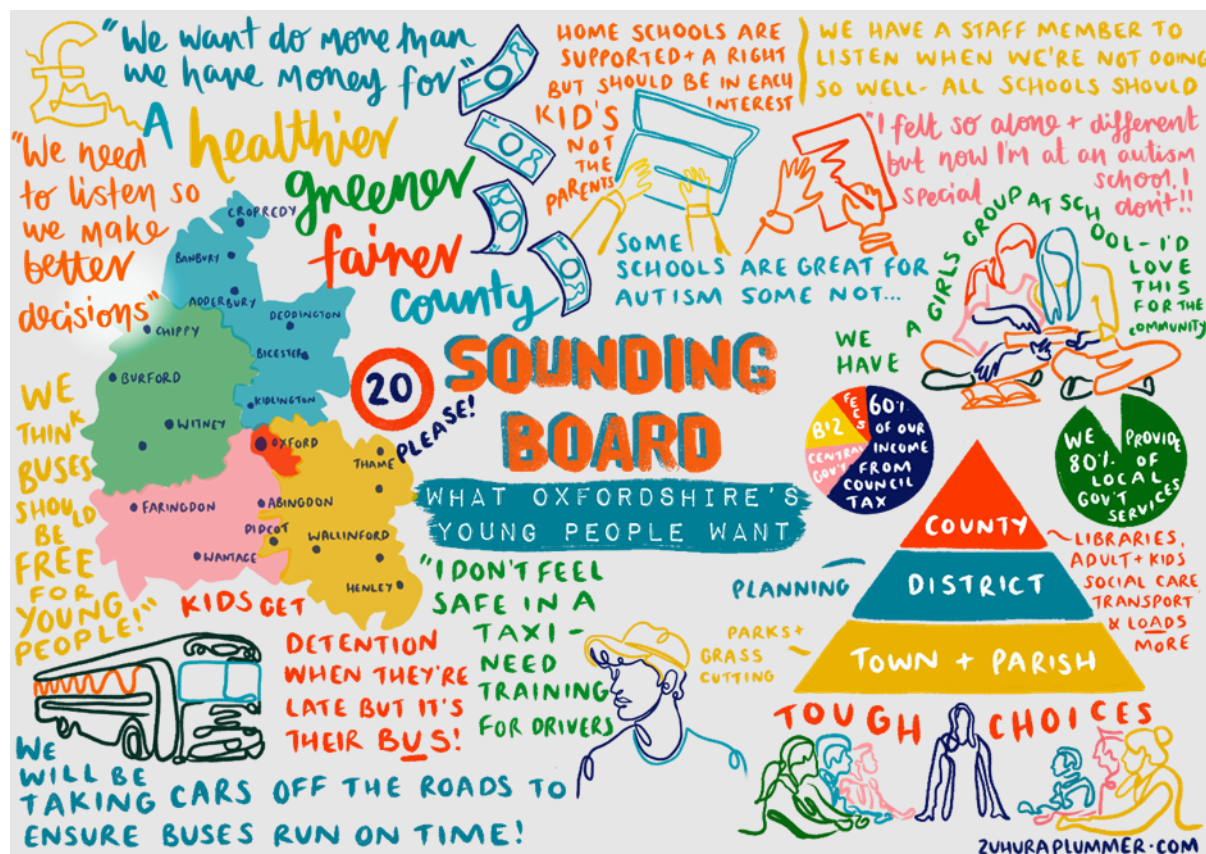 "We want do more than
we have money for"
A healthier
greener
fairer
county
"We need
to listen so
we make
better
decisions"
HOME SCHOOLS ARE
SUPPORTED + A RIGHT
BUT SHOULD BE IN EACH
INTEREST
KID'S
NOT
THE
PARENTS
WE HAVE A STAFF MEMBER TO
LISTEN WHEN WE'RE NOT DOING
SO WELL - ALL SCHOOLS SHOULD
"I felt so alone + different
but now I'm at an autism
special school, I
don't!!
SOME
SCHOOLS ARE GREAT FOR
AUTISM SOME NOT...
WE
HAVE
A GIRLS GROUP AT SCHOOL - I'D
LOVE
THIS
FOR THE
COMMUNITY
CROPREDY
BANBURY
ADDERBURY
DEDDINGTON
CHIPPY
BICESTER
BURFORD
KIDLINGTON
WITNEY
OXFORD
THAME
FARINGDON
ABINGDON
DIDCOT
WALLINFORD
WANTAGE
HENLEY
20
PLEASE!
SOUNDING
BOARD
WHAT OXFORDSHIRE'S
YOUNG PEOPLE WANT
FEES
BIZ
CENTRAL
GOV'T
60%
OF OUR
INCOME
FROM
COUNCIL
TAX
WE PROVIDE
80% OF
LOCAL
GOV'T
SERVICES
COUNTY
LIBRARIES,
ADULT + KIDS
SOCIAL CARE
TRANSPORT
& LOADS
MORE
PLANNING
DISTRICT
PARKS +
GRASS
CUTTING
TOWN + PARISH
TOUGH CHOICES
WE
THINK
BUSES
SHOULD
BE
FREE
FOR
YOUNG
PEOPLE!"
KIDS GET
DETENTION
WHEN THEY'RE
LATE BUT IT'S
THEIR BUS!
"I DON'T FEEL
SAFE IN A
TAXI -
NEED
TRAINING
FOR DRIVERS
WE
WILL BE
TAKING CARS OFF THE ROADS TO
ENSURE BUSES RUN ON TIME!
ZUHURAPLUMMER.COM